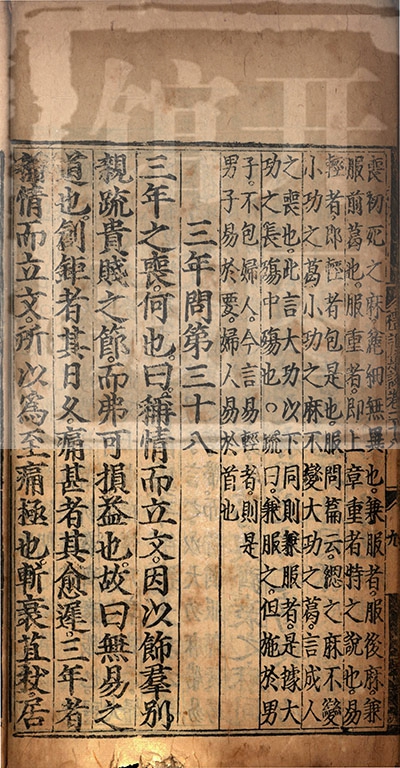 喪初死之麻麄細無異也。兼服者。服後麻。兼
服前葛也。服重者。即上章重者特之說也。易
輕者。即輕者包是也。服問篇云。緦之麻不變
小功之葛。小功之麻不變大功之葛。言成人
之喪也。此言大功以下同則兼服者。是據大
功之長殤中殤也。○疏曰。兼服之。但施於男
子。不包婦人。今言易輕者。則是
男子易於要。婦人易於首也
三年問第三十八
三年之喪。何也。曰。稱情而立文。因以飾羣。別
親疏貴賤之節。而弗可損益也。故曰無易之
道也。創鉅者其日久。痛甚者其愈遲。三年者
稱情而立文。所以爲至痛極也。斬衰苴杖。居
九